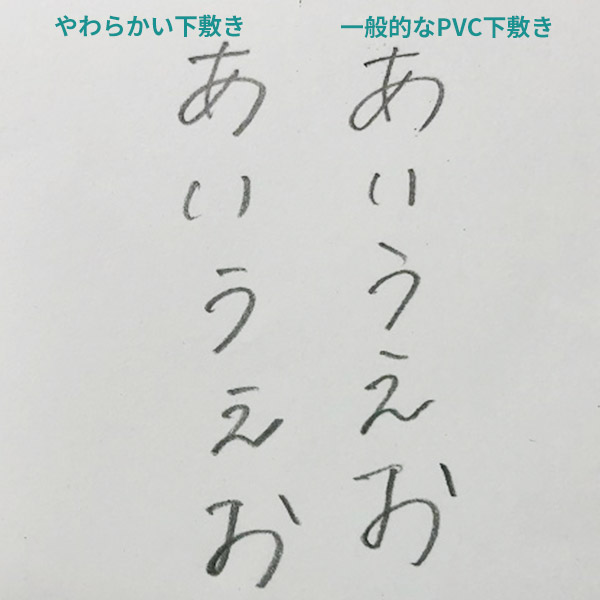 やわらかい下敷き
あいうえお
一般的なPVC下敷き
あいうえお